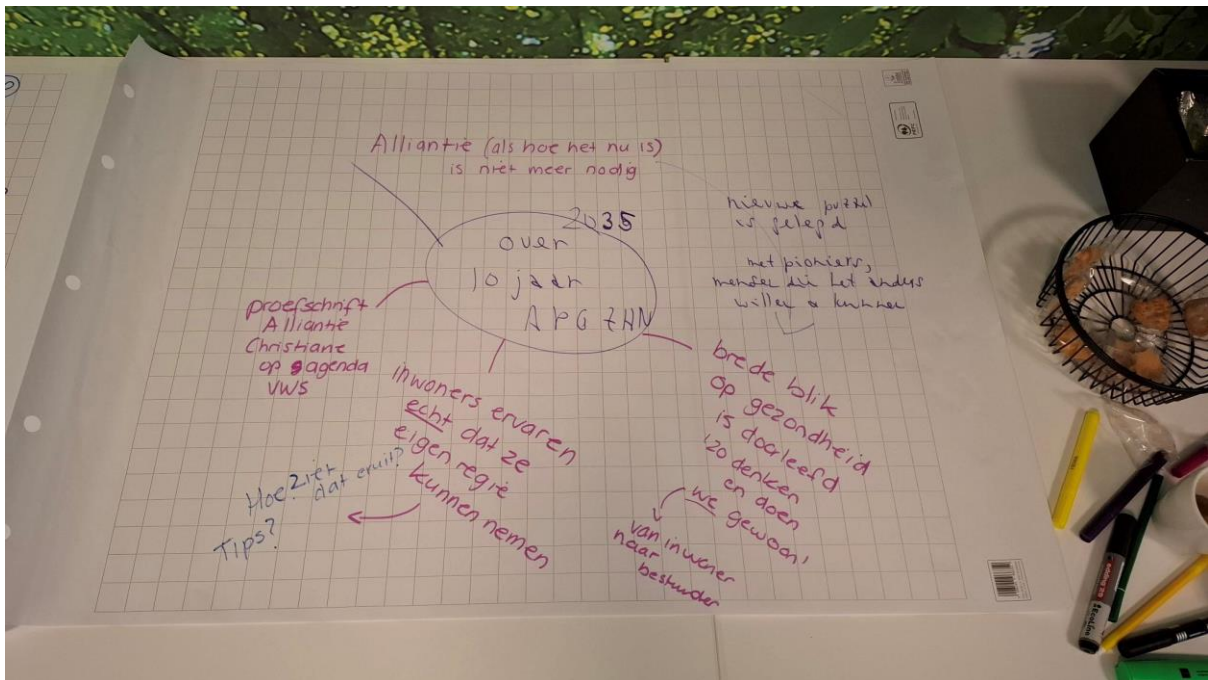 Alliantie (als hoe het nu is)
is niet meer nodig
nieuwe puzzel
is gelegd
met pioniers,
mensen die het anders
willen & kunnen
2035
over
10 jaar
APG ZHN
proefschrift
Alliantie
Christiane
op agenda
VWS
inwoners ervaren
echt dat ze
eigen regie
kunnen nemen
Hoe ziet
dat eruit?
Tips?
brede blik
op gezondheid
is doorleefd
zo denken
en doen
we gewoon!
van inwoner
naar
bestuurder